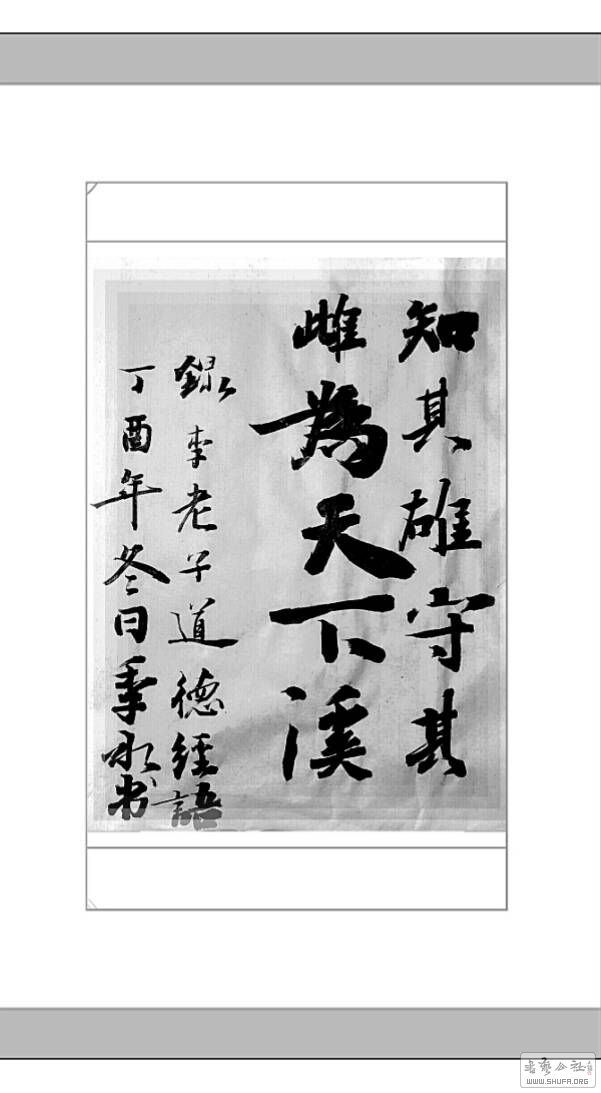 知其雄守其
雌為天下溪
錄李老子道德經語
丁酉年冬日季永书
WWW.SHUFA.ORG